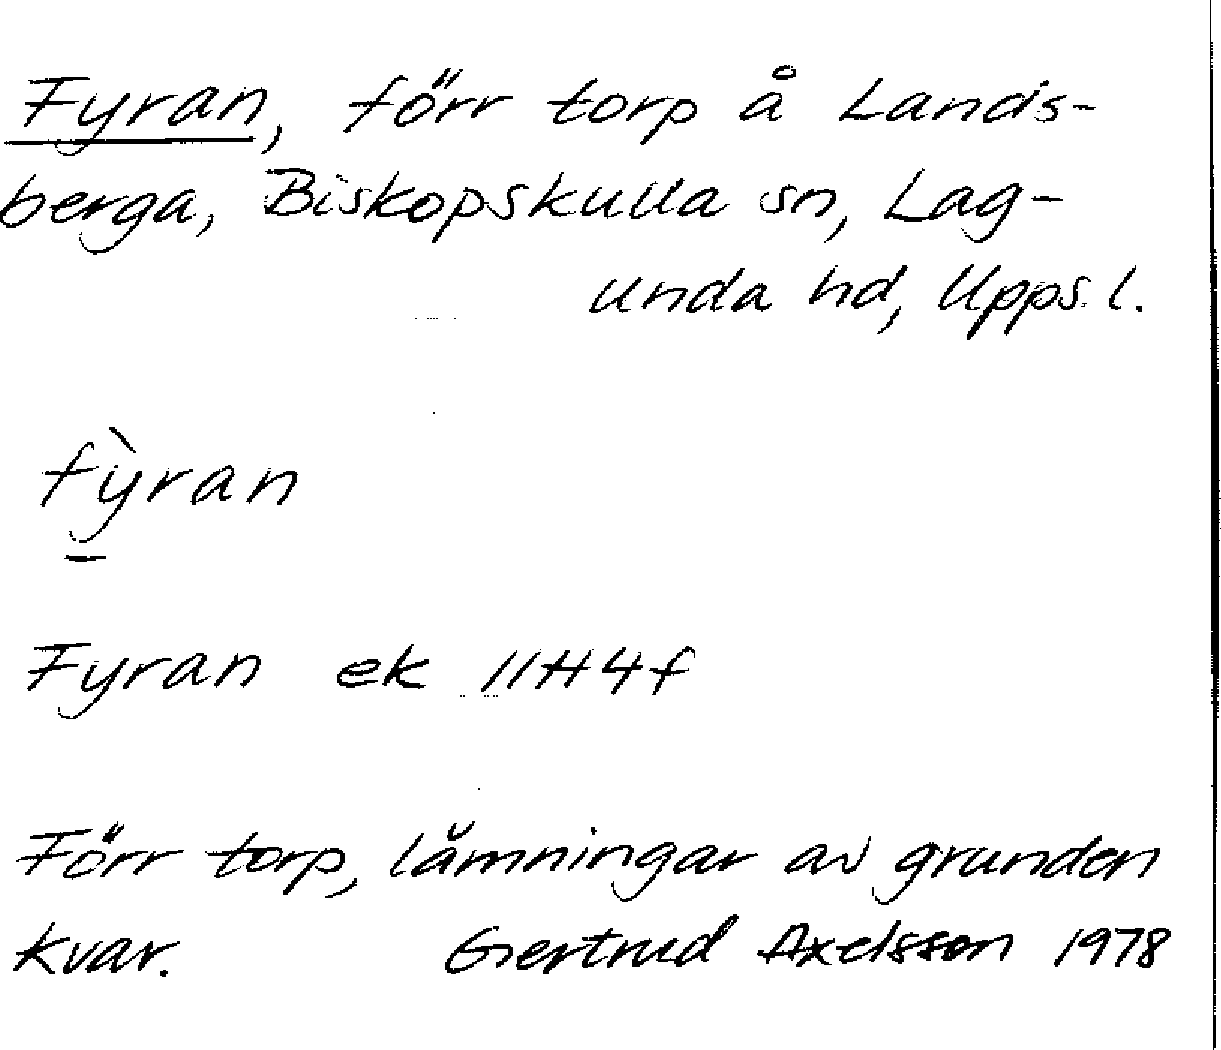 Fyran, förr torp å Lands-
berga, Biskopskulla sn, Lag-
unda hd, Upps. l.
fỳran
Fyran ek 11H4f
Förr torp, lämningar av grunden
kvar. Gertrud Axelsson 1978